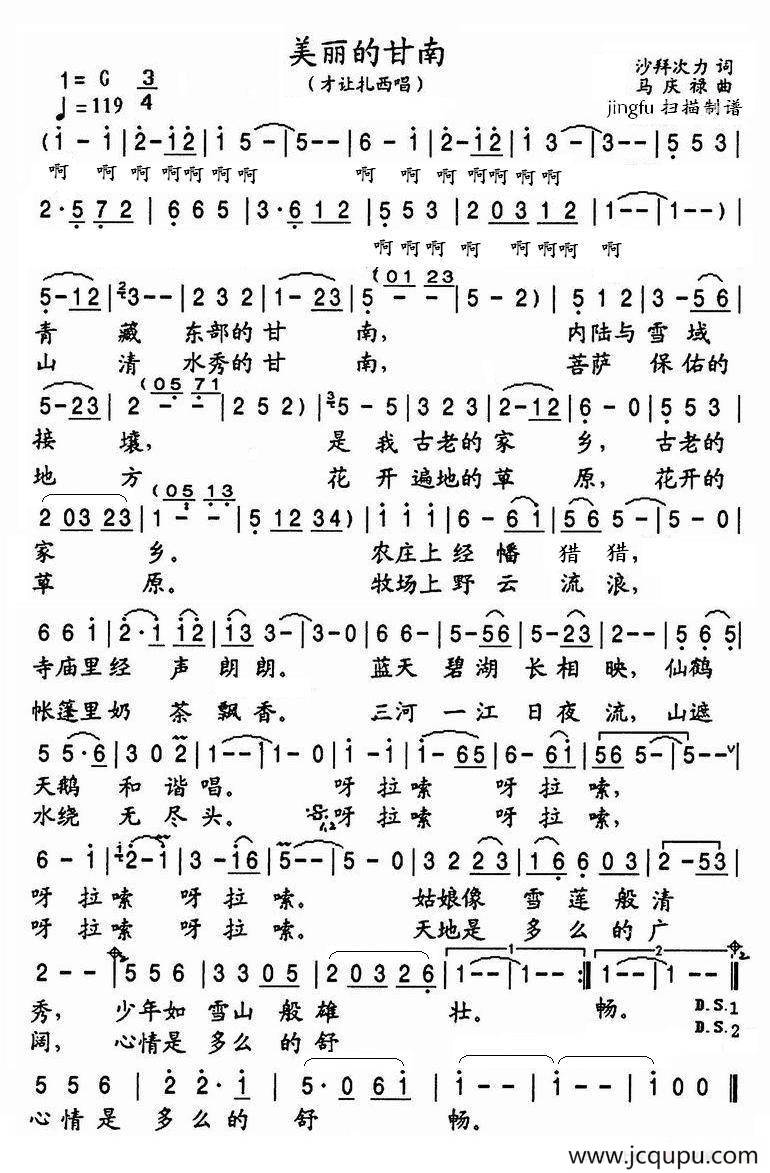 美丽的甘南
(才让扎西唱)
沙拜次力 词
马庆禄 曲
jingfu 扫描制谱
1= C 3/4
♩=119
(i - i | 2-12 | 3 - i | 5-- | 5-- | 6 - i | 2-12 | i - 3 | 3-- | 5 5 3 |
啊 啊 啊 啊啊 啊 啊 啊 啊 啊 啊啊 啊 啊
2·5 7 2 | 6 6 5 | 3·6 1 2 | 5 5 3 | 2 03 12 | 1-- | 1--) |
啊 啊 啊 啊 啊 啊啊 啊
(01 23
5-12 | 3-- | 2 3 2 | 1-23 | 5 - - | 5-2) | 5 1 2 | 3-56 |
青 藏 东部的 甘 南, 内陆与 雪 域
山 清 水秀的 甘 南, 菩萨 保佑的
(05 71
5-23 | 2 - - | 2 5 2) | 5-5 | 3 2 3 | 2-12 | 6-0 | 5 5 3 |
接 壤, 是 我 古老的 家 乡, 古老的
地 方 花 开 遍地的 草 原, 花开的
(05 13
2 03 23 | 1 - - | 5 12 34) | i i i | 6-61 | 56 5 | 5-0 |
家 乡。 农庄上 经 幡 猎 猎,
草 原。 牧场上 野 云 流 浪,
6 6 i | 2·i i2 | i3 3- | 3-0 | 6 6- | 5-56 | 5-23 | 2--0 | 5 6 5 |
寺庙里 经 声 朗 朗。 蓝天 碧湖 长 相 映, 仙鹤
帐蓬里 奶 茶 飘 香。 三河 一江 日 夜 流, 山遮
5 5·6 | 3 0 2 | 1-- | 1-0 | i-i | i-65 | 6-6i | 56 5- | 5--v |
天鹅 和 谐 唱。 呀 拉 嗦 呀 拉 嗦,
水绕 无 尽 头。 呀 拉 嗦 呀 拉 嗦,
6-i | 2-i | 3-i6 | 5-- | 5-0 | 6 6 2 | 2 2 3 | 1 6 6 03 | 2-53 |
呀 拉 嗦 呀 拉 嗦。 姑娘像 雪 莲 般 清
呀 拉 嗦 呀 拉 嗦。 天地是 多 么 的 广
2-- | 5 5 6 | 3 3 05 | 2 03 26 | 1-- | 1-- :| 1-- | 1-- ||
秀, 少年如 雪山 般 雄 壮。 畅。 D.S.1
阔, 心情是 多么 的 舒 D.S.2
5 5 6 | 2 2·i | 5·0 6i | i-- | i-- | i 0 0 ||
心 情 是 多 么 的 舒 畅。
www.jcqupu.com